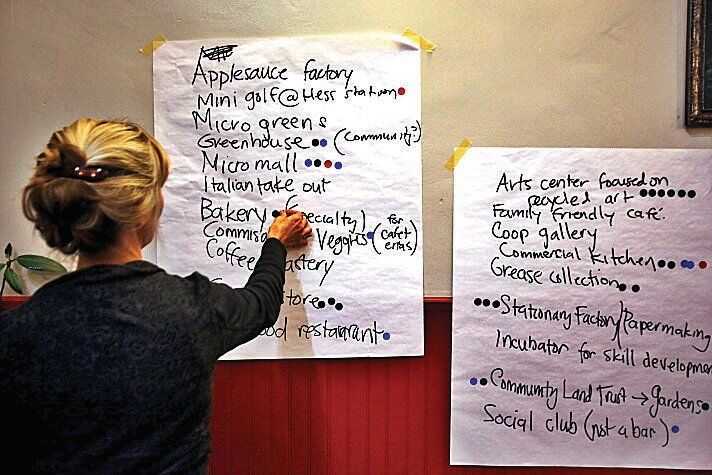 Applesauce factory
Mini golf @ Hess station
Micro greens
Greenhouse (community?)
Micro mall
Italian take out
Bakery (specialty)
Veggies (for cafeterias)
Coffee
store
restaurant
Arts center focused on
recycled art
Family friendly café.
Coop gallery
Commercial Kitchen
Grease collection
Stationary Factory/Papermaking
Incubator for skill
Community Land Trust → gardens
Social club (not a bar)